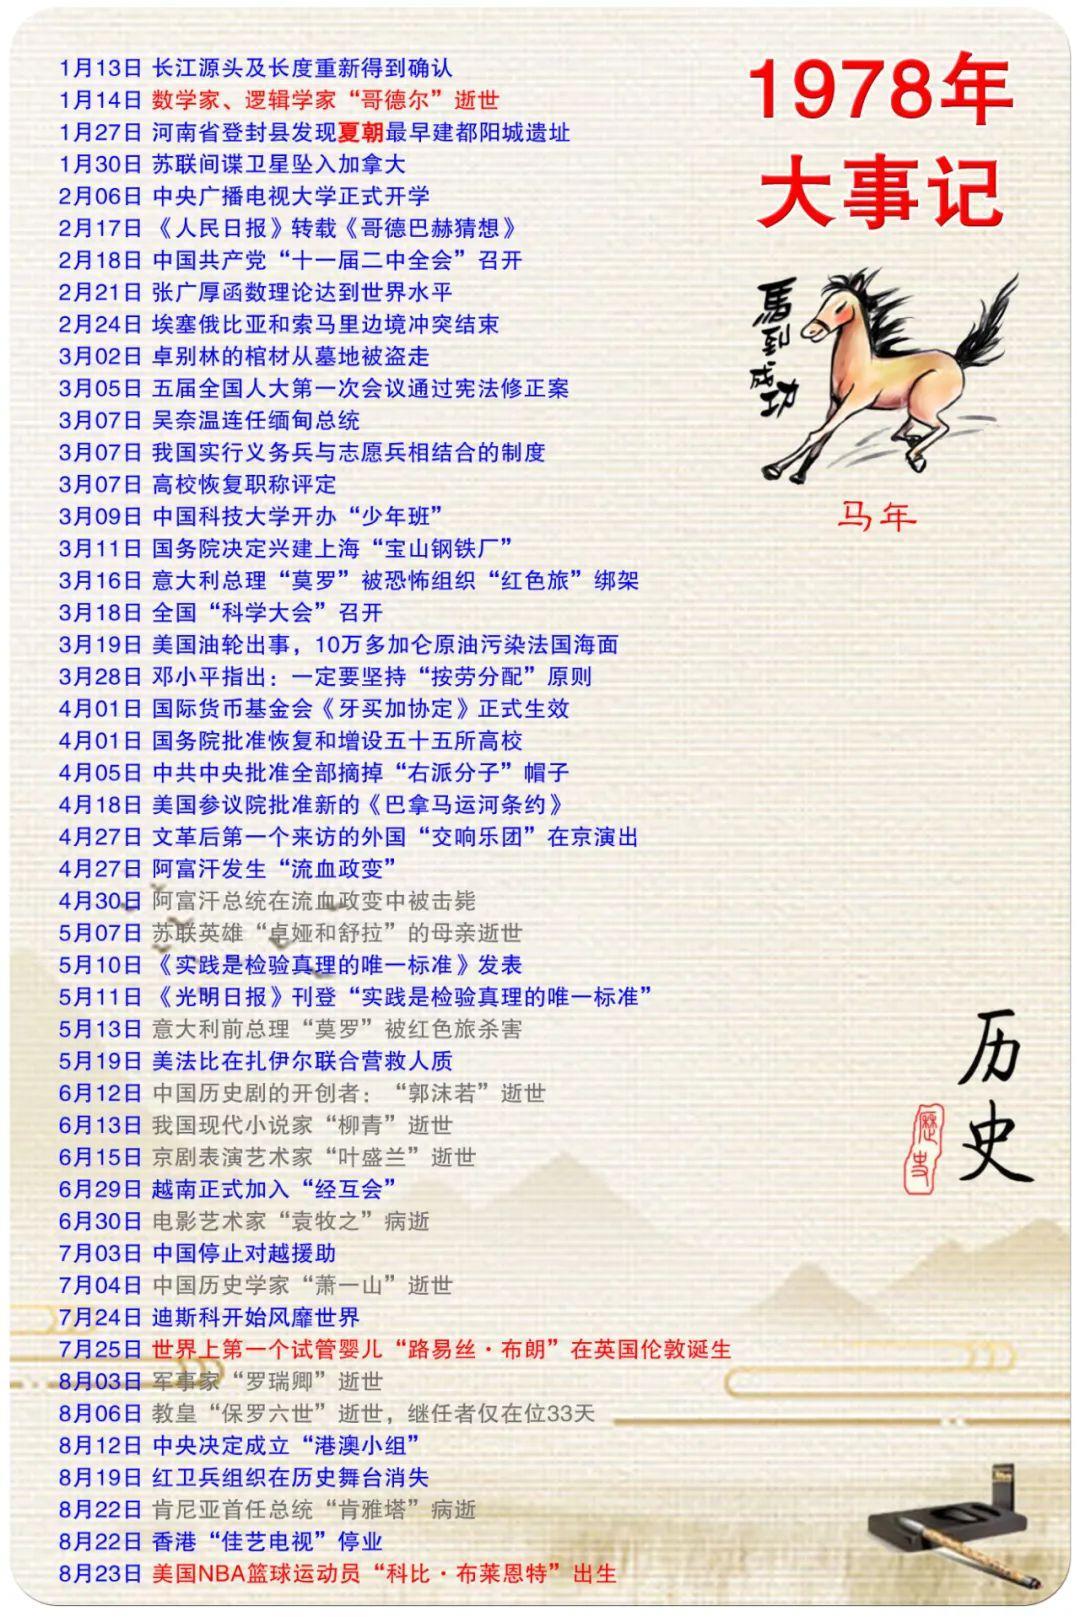 1978年
大事记
馬到成功
马年
1月13日 长江源头及长度重新得到确认
1月14日 数学家、逻辑学家“哥德尔”逝世
1月27日 河南省登封县发现夏朝最早建都阳城遗址
1月30日 苏联间谍卫星坠入加拿大
2月06日 中央广播电视大学正式开学
2月17日 《人民日报》转载《哥德巴赫猜想》
2月18日 中国共产党“十一届二中全会”召开
2月21日 张广厚函数理论达到世界水平
2月24日 埃塞俄比亚和索马里边境冲突结束
3月02日 卓别林的棺材从墓地被盗走
3月05日 五届全国人大第一次会议通过宪法修正案
3月07日 吴奈温连任缅甸总统
3月07日 我国实行义务兵与志愿兵相结合的制度
3月07日 高校恢复职称评定
3月09日 中国科技大学开办“少年班”
3月11日 国务院决定兴建上海“宝山钢铁厂”
3月16日 意大利总理“莫罗”被恐怖组织“红色旅”绑架
3月18日 全国“科学大会”召开
3月19日 美国油轮出事，10万多加仑原油污染法国海面
3月28日 邓小平指出：一定要坚持“按劳分配”原则
4月01日 国际货币基金会《牙买加协定》正式生效
4月01日 国务院批准恢复和增设五十五所高校
4月05日 中共中央批准全部摘掉“右派分子”帽子
4月18日 美国参议院批准新的《巴拿马运河条约》
4月27日 文革后第一个来访的外国“交响乐团”在京演出
4月27日 阿富汗发生“流血政变”
4月30日 阿富汗总统在流血政变中被击毙
5月07日 苏联英雄“卓娅和舒拉”的母亲逝世
5月10日 《实践是检验真理的唯一标准》发表
5月11日 《光明日报》刊登“实践是检验真理的唯一标准”
5月13日 意大利前总理“莫罗”被红色旅杀害
5月19日 美法比在扎伊尔联合营救人质
6月12日 中国历史剧的开创者：“郭沫若”逝世
6月13日 我国现代小说家“柳青”逝世
6月15日 京剧表演艺术家“叶盛兰”逝世
6月29日 越南正式加入“经互会”
6月30日 电影艺术家“袁牧之”病逝
7月03日 中国停止对越援助
7月04日 中国历史学家“萧一山”逝世
7月24日 迪斯科开始风靡世界
7月25日 世界上第一个试管婴儿“路易丝·布朗”在英国伦敦诞生
8月03日 军事家“罗瑞卿”逝世
8月06日 教皇“保罗六世”逝世，继任者仅在位33天
8月12日 中央决定成立“港澳小组”
8月19日 红卫兵组织在历史舞台消失
8月22日 肯尼亚首任总统“肯雅塔”病逝
8月22日 香港“佳艺电视”停业
8月23日 美国NBA篮球运动员“科比·布莱恩特”出生
历史
歷史